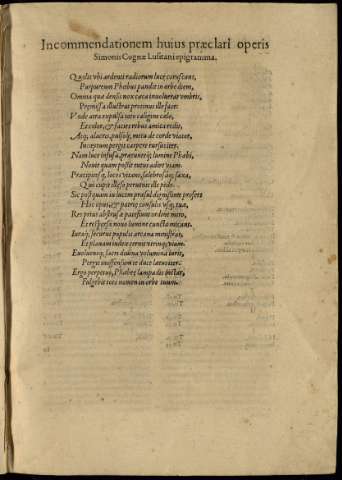 In commendationem huius præclari operis
Simonis Cugnæ Lusitani epigramma.
Qualis vbi ardenti radiorum luce coruscans,
Purpureum Phœbus pandit in orbe diem,
Omnia quæ densis nox cæca inuoluerat vmbris,
Promissa illustrat protinus ille face:
Vnde atra expulsa toto caligine cœlo,
Et color, & facies rebus amica redit,
Atq; alacres, pulsoq; metu de corde viator,
Inceptum pergit carpere rursus iter.
Nam luce infusa, præeunteq; lumine Phœbi,
Nouit quam possit tutus adire viam.
Præcipitesq; locos vitans, salebrosaq; saxa,
Qui cupit illæso peruenit ille pede.
Sic postquam in lucem præsul dignissime profers
Hoc opus, & patriæ consulis vsq; tuæ,
Res prius abstrusæ patefiunt ordine miro,
Et respersa nouo lumine cuncta micant.
Iuraq; securus populis arcana ministras,
Et planam iudex cernit vterque viam.
Euoluensq; sacri diuina volumina iuris,
Perget inoffensum te duce lætus iter.
Ergo perpetuo, Phœbeæ lampadis instar,
Fulgebit toto nomen in orbe tuum.